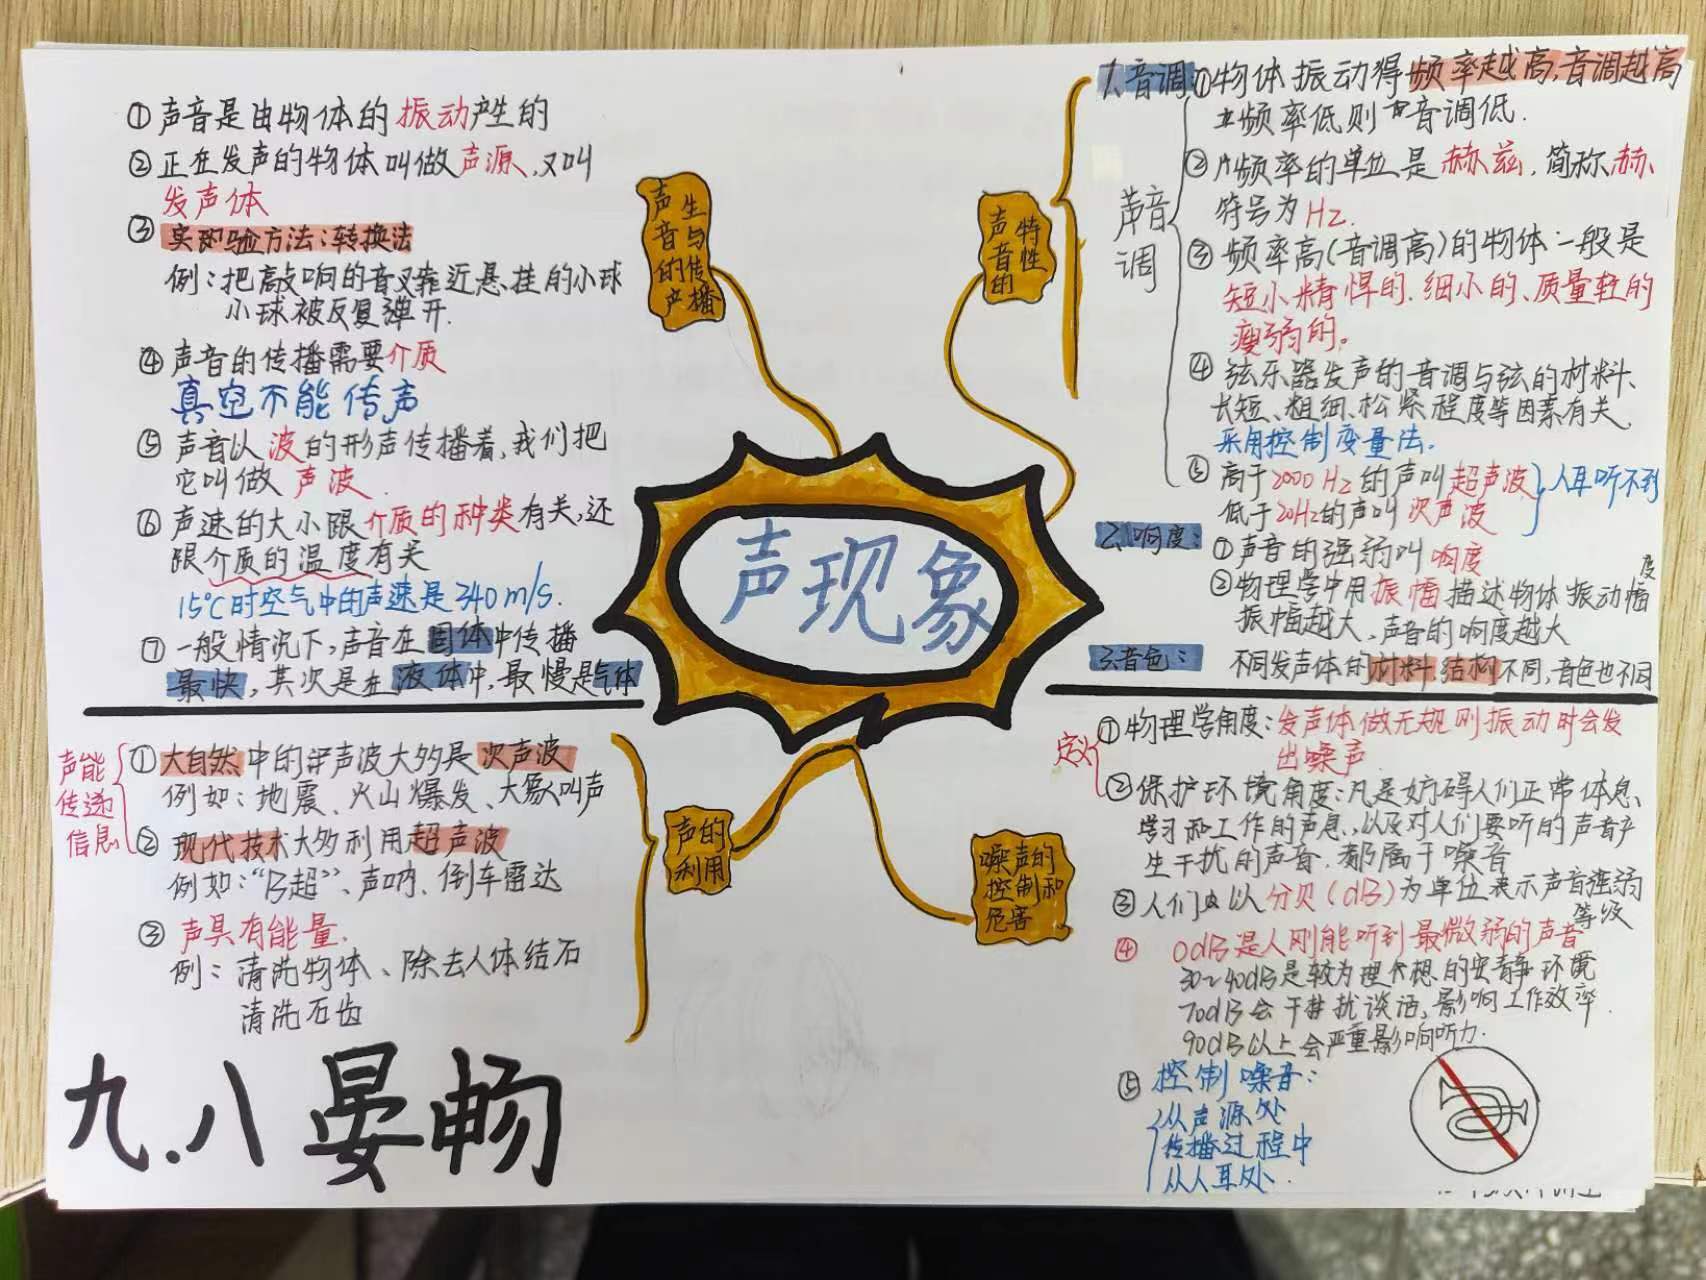 声现象
声音的产生与传播
①声音是由物体的振动产生的
②正在发声的物体叫做声源,又叫
发声体
③实验方法:转换法
例:把敲响的音叉靠近悬挂的小球
小球被反复弹开.
④声音的传播需要介质
真空不能传声
⑤声音以波的形声传播着,我们把
它叫做声波.
⑥声速的大小跟介质的种类有关,还
跟介质的温度有关
15℃时空气中的声速是340m/s.
⑦一般情况下,声音在固体中传播
最快,其次是在液体中,最慢是气体
声音的特性
1.音调:
音调
①物体振动得频率越高,音调越高
频率低则音调低.
②频率的单位是赫兹,简称赫
符号为Hz.
③频率高(音调高)的物体一般是
短小精悍的.细小的、质量轻的
瘦弱的。
④弦乐器发声的音调与弦的材料、
长短、粗细、松紧程度等因素有关.
采用控制变量法.
⑤高于2000Hz的声叫超声波
低于20Hz的声叫次声波
人耳听不到
2.响度:
①声音的强弱叫响度
②物理学中用振幅描述物体振动幅度
振幅越大,声音的响度越大
3.音色:
不同发声体的材料.结构不同,音色也不同
声的利用
声能传递信息
①大自然中的声波大多是次声波
例如:地震、火山爆发、大象叫声
②现代技术大多利用超声波
例如:“B超”、声呐、倒车雷达
③声具有能量.
例:清洗物体、除去人体结石
清洗石齿
噪声的控制和危害
定义
①物理学角度:发声体做无规则振动时会发
出噪声
②保护环境角度:凡是妨碍人们正常体息、
学习和工作的声息,以及对人们要听的声音产
生干扰的声音.都属于噪音
③人们以分贝(dB)为单位表示声音强弱
等级
④0dB是人刚能听到最微弱的声音
30~40dB是较为理想的安静环境
70dB会干扰谈话,影响工作效率.
90dB以上会严重影响听力.
⑤控制噪音:
从声源处
传播过程中
从人耳处.
九.八 晏畅